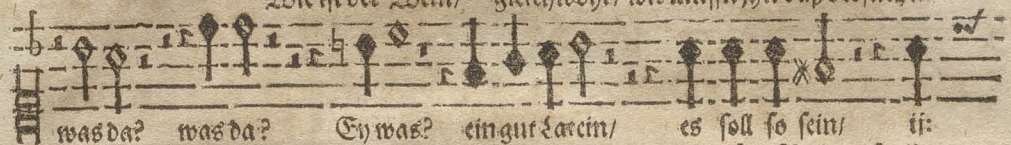 was da? was da? Ey was? ein gut Latein/ es soll so sein/ ij: